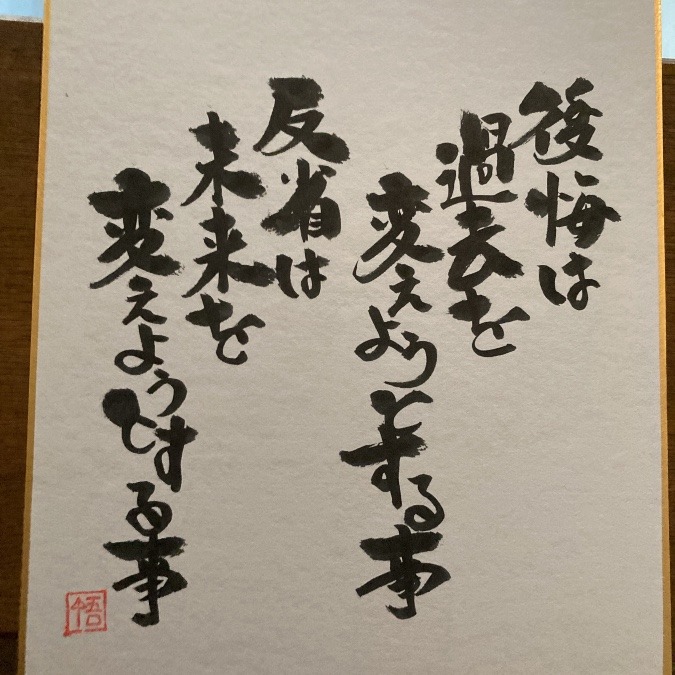 後悔は
過去を
変えようとする事
反省は
未来を
変えようとする事
悟